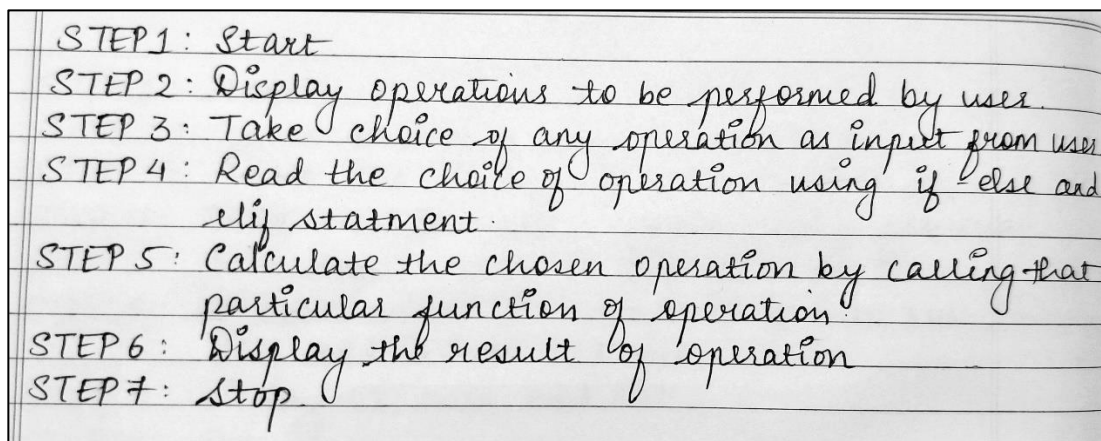 STEP 1: Start
STEP 2: Display operations to be performed by user.
STEP 3: Take choice of any operation as input from user
STEP 4: Read the choice of operation using if-else and
elif statment.
STEP 5: Calculate the chosen operation by calling that
particular function of operation.
STEP 6: Display the result of operation
STEP 7: Stop.